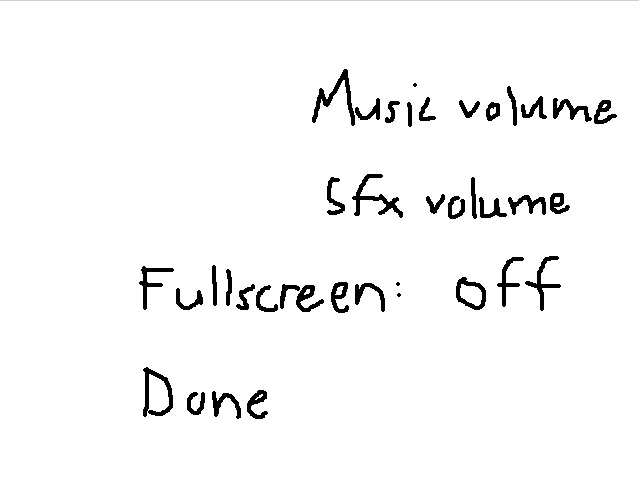 Music volume
Sfx volume
Fullscreen: off
Done